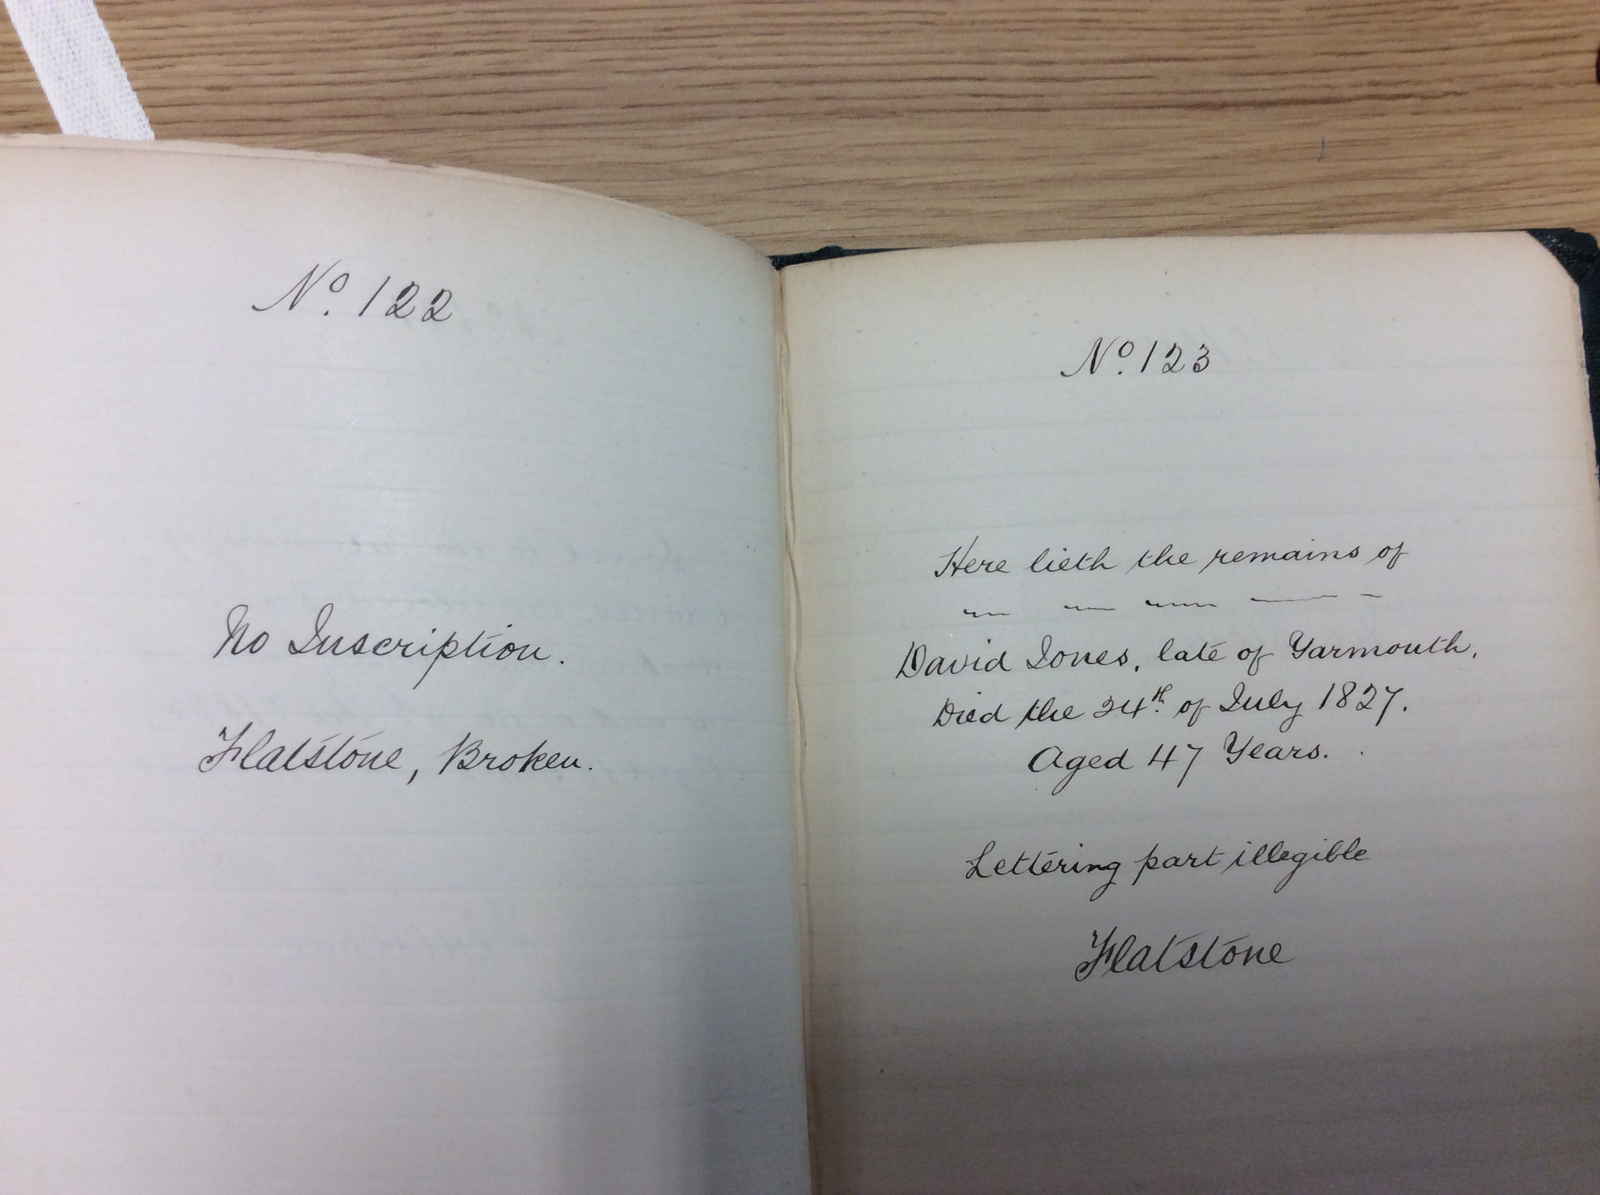 No. 122
No Inscription.
Flatstone, Broken.
No. 123
Here lieth the remains of
David Jones, late of Yarmouth,
Died the 24th. of July 1827.
Aged 47 Years.
Lettering part illegible
Flatstone